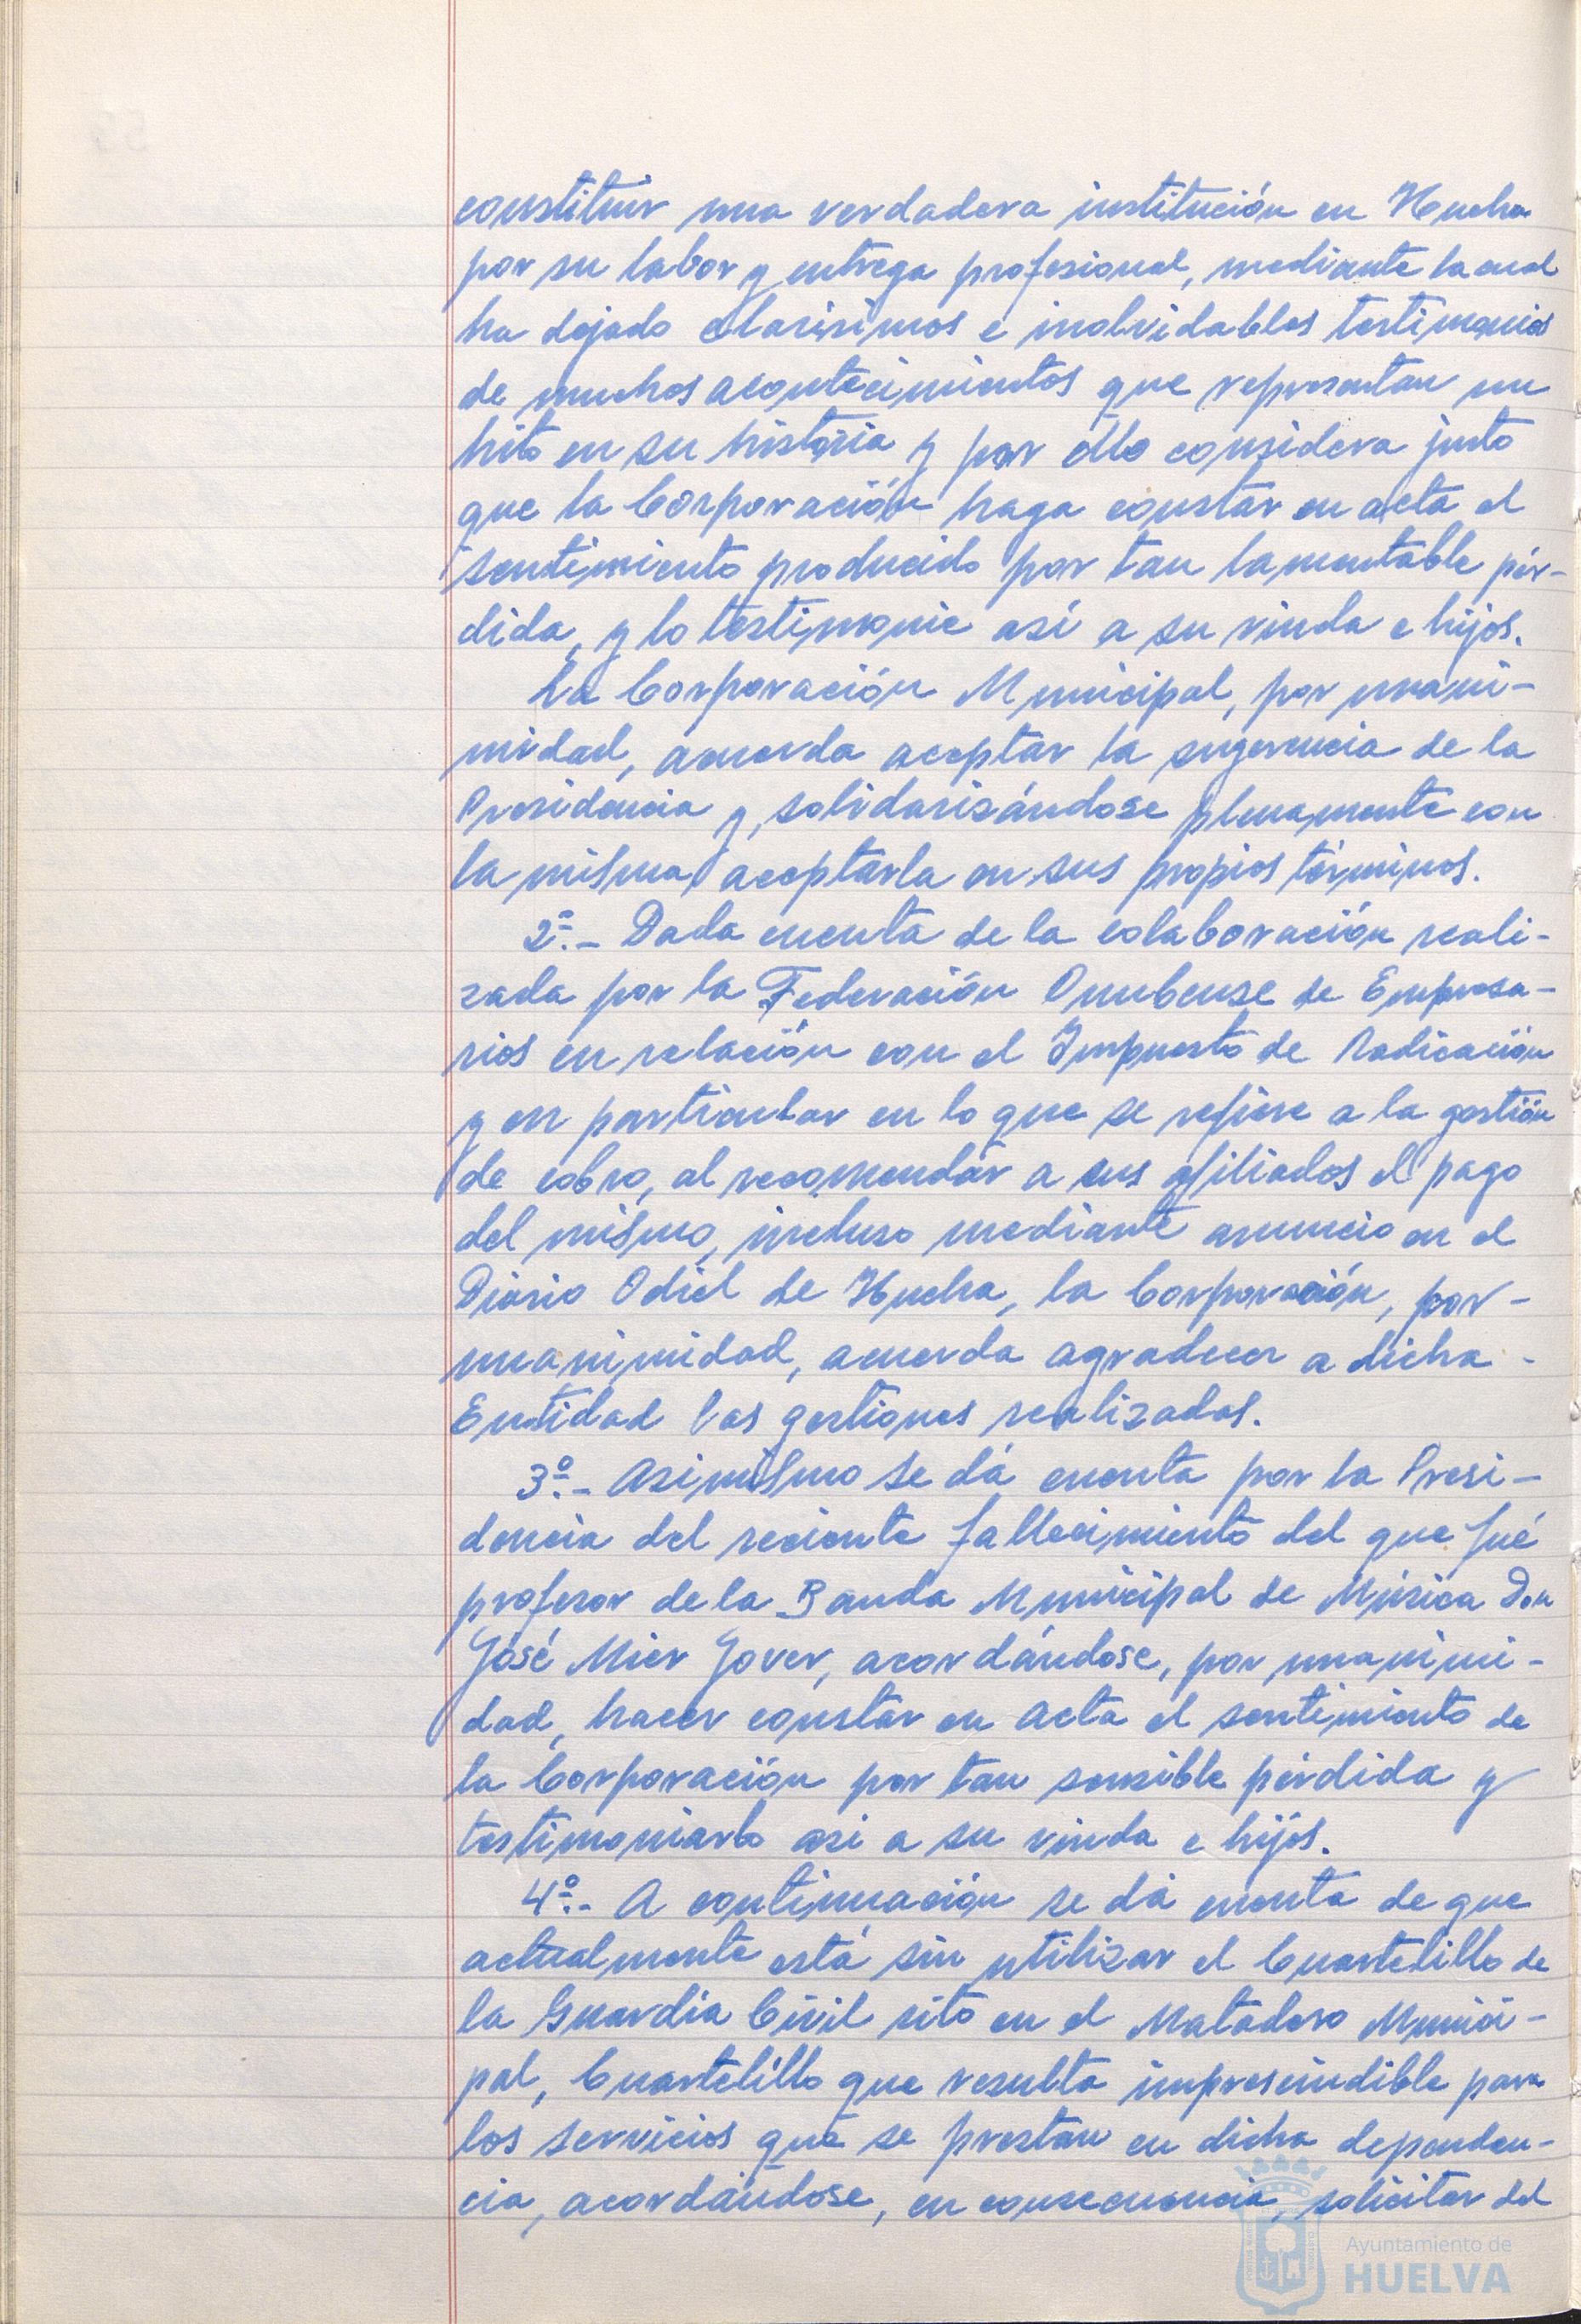 constituir una verdadera institución en Huelva
por su labor y entrega profesional, mediante la cual
ha dejado clarisimos e inolvidables testimonios
de muchos acontecimientos que representan un
hito en su história y por ello considera justo
que la Corporación haga constar en acta el
sentimiento producido por tan lamentable pér-
dida, y lo testimonie así a su viuda e hijos.
La Corporación Municipal, por unani-
midad, acuerda aceptar la sugerencia de la
Presidencia y, solidarizándose plenamente con
la misma, aceptarla en sus propios términos.
2º.- Dada cuenta de la colaboración reali-
zada por la Federación Onubense de Empresa-
rios en relación con el Impuesto de Radicación
y en particular en lo que se refiere a la gestión
de cobro, al recomendar a sus afiliados el pago
del mismo, incluso mediante anuncio en el
Diario Odiel de Huelva, la Corporación, por-
unanimidad, acuerda agradecer a dicha -
Entidad las gestiones realizadas.
3º.- Asimismo se dá cuenta por la Presi-
dencia del reciente fallecimiento del que fué
profesor de la Banda Municipal de Música Don
José Mier Jover, acordándose, por unanimi-
dad, hacer constar en acta el sentimiento de
la Corporación por tan sensible pérdida y
testimoniarlo asi a su viuda e hijos.
4º.- A continuación se dá cuenta de que
actualmente está sin utilizar el Cuartelillo de
la Guardia Civil sito en el Matadero Munici-
pal, Cuartelillo que resulta imprescindible para
los servicios que se prestan en dicha dependen-
cia, acordándose, en consecuencia, solicitar del
Ayuntamiento de
HUELVA